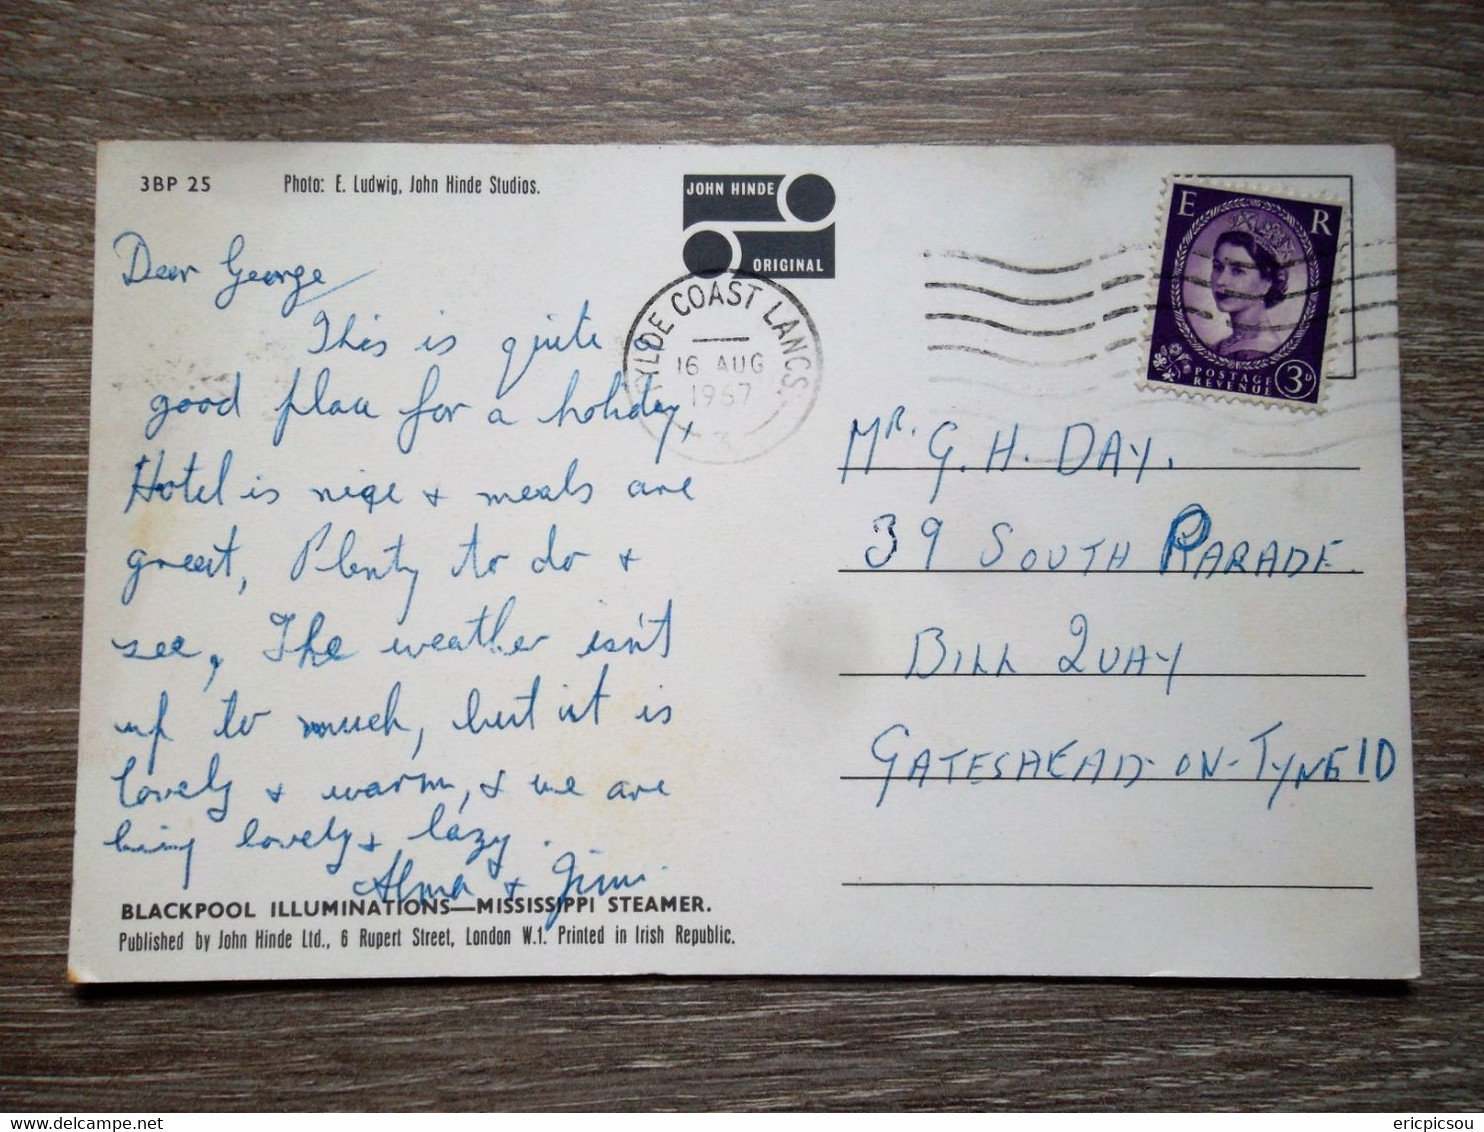 3BP 25
Photo: E. Ludwig, John Hinde Studios.
JOHN HINDE
ORIGINAL
Dear George
This is quite
good place for a holiday,
Hotel is nice + meals are
great, Plenty to do +
see, The weather isn't
up to much, but it is
lovely + warm, + we are
being lovely + lazy.
Alma + Jim.
BLACKPOOL ILLUMINATIONS—MISSISSIPPI STEAMER.
Published by John Hinde Ltd., 6 Rupert Street, London W.1. Printed in Irish Republic.
FYLDE COAST LANCS.
16 AUG
1967
3
E R
POSTAGE
REVENUE
3D
MR. G. H. DAY.
39 SOUTH PARADE.
BILL QUAY
GATESHEAD-ON-TYNE 10
delcampe.net
ericpicsou